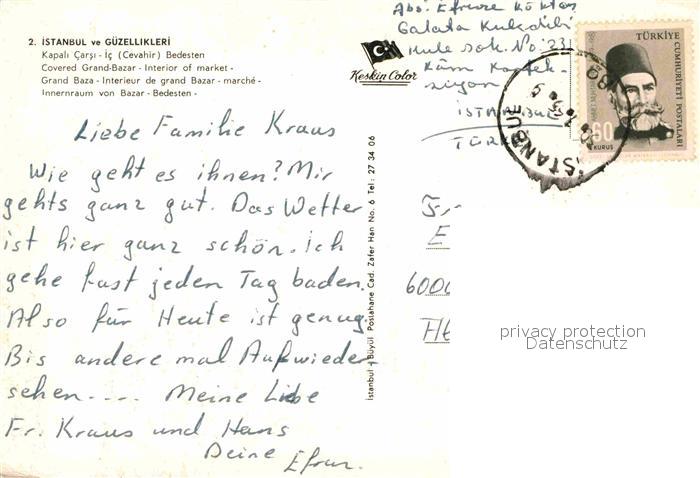 2. İSTANBUL ve GÜZELLİKLERİ
Kapalı Çarşı - İç (Cevahir) Bedesten
Covered Grand-Bazar - Interior of market -
Grand Baza - Interieur de grand Bazar - marché -
Innernraum von Bazar - Bedesten -
Keskin Color
Galata
No: 231
İSTANBUL
TÜRK
TÜRKİYE
CUMHURİYETİ POSTALARI
60
KURUŞ
İSTANBUL
Liebe Familie Kraus
Wie geht es ihnen? Mir
gehts ganz gut. Das Wetter
ist hier ganz schön. Ich
gehe fast jeden Tag baden.
Also für Heute ist genug.
Bis andere mal Aufwieder-
sehen.... Meine Liebe
Fr. Kraus und Hans
Deine
İstanbul - Büyük Postahane Cad. Zafer Han No. 6 Tel: 27 34 06
Fr.
E
6000
privacy protection
Datenschutz